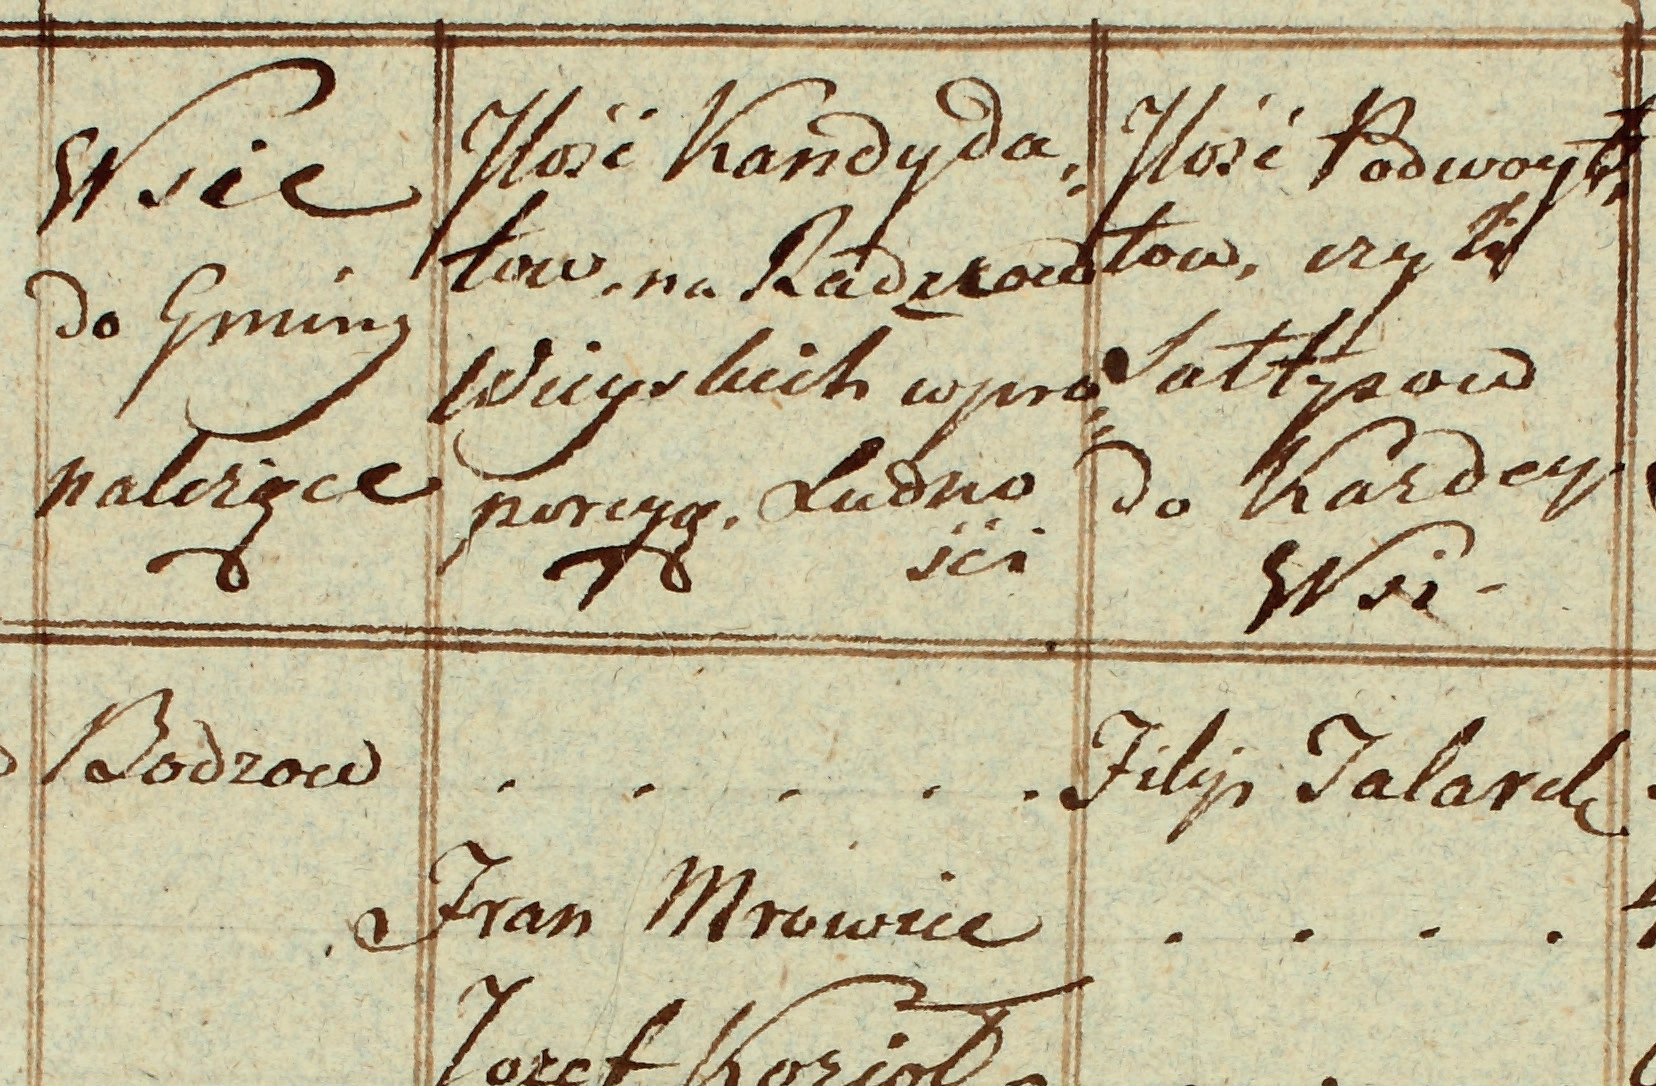 Wsie
do Gminy
należące
Ilość Kandyda„
tow na Radzcow
Wieyskich w pro„
porcyą Ludno
ści
Ilość Podwoyt„
tow, czyli
Sołtysow
do Kazdey
Wsi -
Bodzow . . . . . Filip Talarek
Fran Mrowiec . . . .
Jozef Kozioł